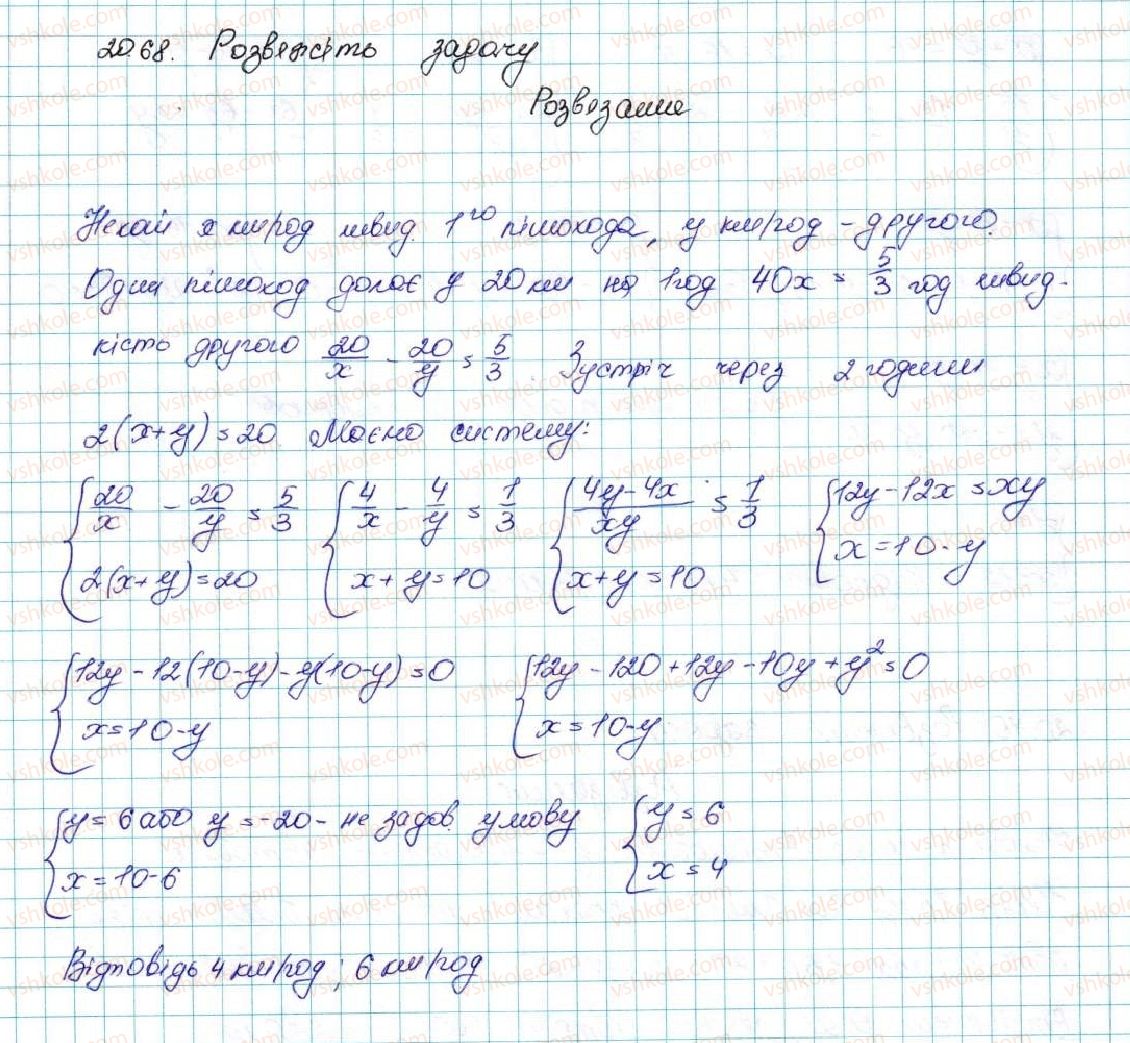 20.68. Розвяжіть задачу
Розвязання
Нехай x км/год швид. 1го пішохода, y км/год - другого.
Один пішоход долає у 20 км на 1год 40х = 5/3 год швид-
кість другого 20/x - 20/y = 5/3. Зустріч через 2 години
2(x+y)=20. Маємо систему:
{ 20/x - 20/y = 5/3 { 4/x - 4/y = 1/3 { (4y-4x)/xy = 1/3 { 12y-12x = xy
{ 2(x+y)=20 { x+y=10 { x+y=10 { x=10-y
{ 12y-12(10-y)-y(10-y)=0 { 12y-120+12y-10y+y²=0
{ x=10-y { x=10-y
{ y=6 або y=-20 - не задов. умову { y=6
{ x=10-6 { x=4
Відповідь 4 км/год; 6 км/год
vshkole.com